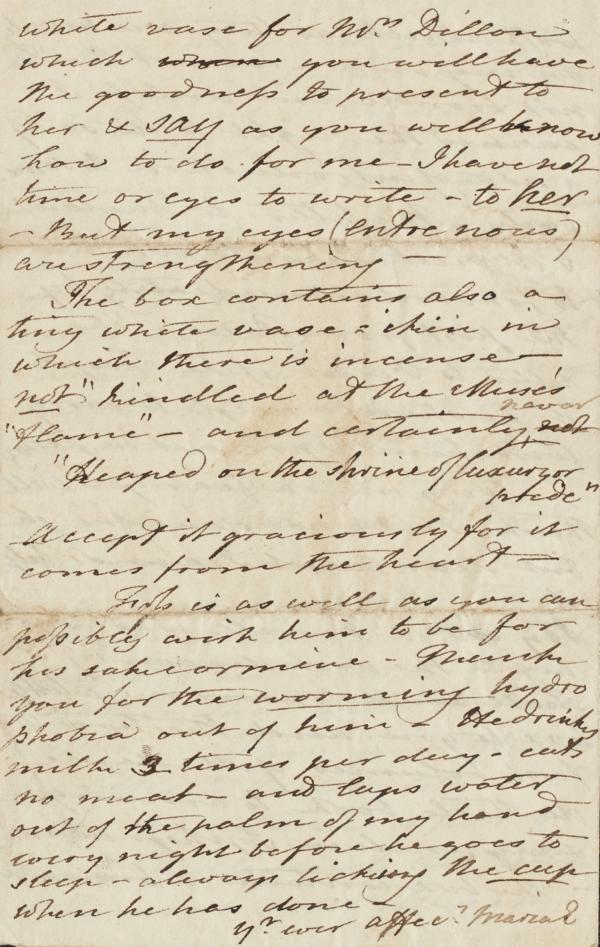 white vase for Mrs Dillon
which when you will have
the goodness to present to
her & say as you will know
how to do for me - I have not
time or eyes to write - to her
- But my eyes (entre nous)
are strengthening -
The box contains also a
tiny white vase = ikin in
which there is incense -
not "kindled at the Muse's
never
"flame" - and certainly not
"Heaped on the shrine of luxury or
pride"
- Accept it graciously for it
comes from the heart -
is as well as you can
possibly wish him to be for
his sake or mine - Thank
you for the worming hydro
phobia out of him - He drinks
milk 3 times per day - eats
no meat - and laps water
out of the palm of my hand
every night before he goes to
sleep - always licking the cup
when he has done -
yr ever affec. Maria E